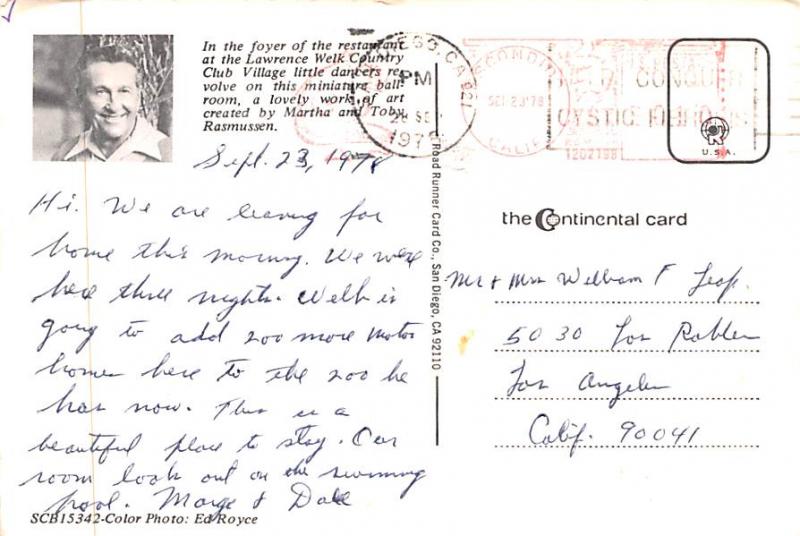 In the foyer of the restaurant
at the Lawrence Welk Country
Club Village little dancers re-
volve on this miniature ball-
room, a lovely work of art
created by Martha and Toby
Rasmussen.
Sept. 23, 1978
Hi. We are leaving for
home this morning. We were
here three nights. Welk is
going to add 200 more motor
homes here to the 200 he
has now. This is a
beautiful place to stay. Our
room look out on the swimming
pool. Marge & Dale
SCB15342-Color Photo: Ed Royce
Road Runner Card Co., San Diego, CA 92110
DIEGO, CA 921
PM
1978
ESCONDIDO
SEP 23'78
CALIF.
CONQUER
CYSTIC FIBROSIS
1202198
U.S.A.
the Continental card
Mr & Mrs William F
5030 Los Robles
Los Angeles
Calif. 90041